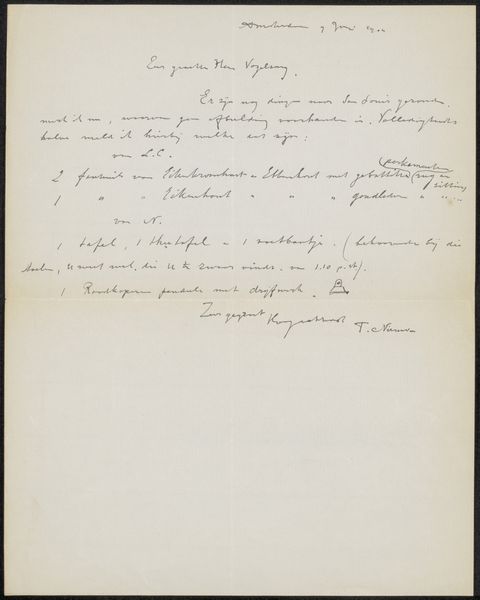 Amsterdam 9 Juni 1904
Zeer geachte Heer Vogelsang,
Er zijn nog dingen naar San Louis gezonden
waarvan geen afbeelding voorhanden is. Volledigheids
halve meld ik welke dat zijn:
van L.C.
2 fauteuils van Eikenhout en Ebbenhout met perkamenten rug en zitting
1 " " Eikenhout " " " goudleder " " "
van N.
1 tafel, 1 theetafel en 1 voetbankje. (behoorende bij die
stoelen, u weet wel, die u te zwaar vindt.
1 Roodkoperen pendule met drijfwerk.
Zeer gegroet Hoogachtend
T. Nieuwe